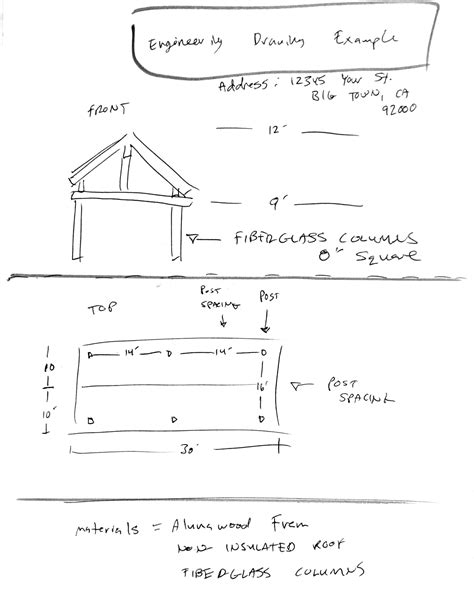 Engineering Drawing Example
Address: 12345 Your St.
BIG TOWN, CA
92000
FRONT
12'
9'
FIBERGLASS COLUMNS
8" Square
TOP
POST
SPACING
POST
14'
14'
10
16'
10'
POST
SPACING
30'
materials = Alumawood Frem
NON INSULATED ROOF
FIBERGLASS COLUMNS